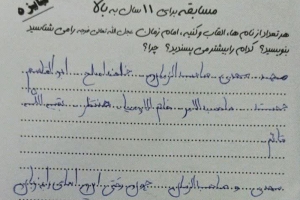 جایزه
مسابقه برای ۱۱ سال به بالا
هر تعداد از نام ها، القاب و کنیه، امام زمان عجل الله تعالی فرجه را می شناسید
بنویسید؟ کدام را بیشتر می پسندید؟ چرا؟
مهدی صاحب الزمان خلف صالح ابوالقاسم
حجت صاحب الامر خاتم الاوصیا منتظر بقیه الله
قائم
مهدی و صاحب الزمان چون وقتی این